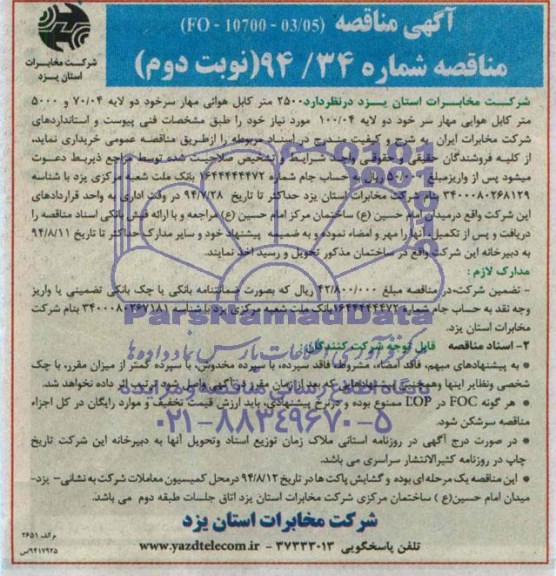 آگهی مناقصه (FO - 10700 - 03/05)
مناقصه شماره ۹۴/۳۴ (نوبت دوم)
شرکت مخابرات
استان یزد
شرکت مخابرات استان یزد درنظردارد ۲۵۰۰ متر کابل هوائی مهار سرخود دو لایه ۷۰/۰۴ و ۵۰۰۰
متر کابل هوایی مهار سر خود دو لایه ۱۰۰/۰۴ مورد نیاز خود را طبق مشخصات فنی پیوست و استانداردهای
شرکت مخابرات ایران به شرح و کیفیت مندرج در اسناد مربوطه را ازطریق مناقصه عمومی خریداری نماید،
از کلیه فروشندگان حقیقی و حقوقی واجد شرایط و تشخیص صلاحیت شده توسط مراجع ذیربط دعوت
میشود پس از واریز مبلغ ۵۰۰/۰۰۰ ریال به حساب جام شماره ۱۶۴۴۴۴۴۴۷۲ بانک ملت شعبه مرکزی یزد با شناسه
۳۴۰۰۰۸۰۲۶۸۱۲۹ بنام شرکت مخابرات استان یزد حداکثر تا تاریخ ۹۴/۷/۲۸ در وقت اداری به واحد قراردادهای
این شرکت واقع درمیدان امام حسین (ع) ساختمان مرکز امام حسین (ع) مراجعه و با ارائه فیش بانکی اسناد مناقصه را
دریافت و پس از تکمیل، آنهارا مهر و امضاء نموده و به ضمیمه پیشنهاد خود و سایر مدارک حداکثر تا تاریخ ۹۴/۸/۱۱
به دبیرخانه این شرکت واقع در ساختمان مذکور تحویل و رسید اخذ نمایند.
مدارک لازم :
- تضمین شرکت در مناقصه مبلغ ۴۲/۸۰۰/۰۰۰ ریال که بصورت ضمانتنامه بانکی یا چک بانکی تضمینی یا واریز
وجه نقد به حساب جام شماره ۱۶۴۴۴۴۴۴۷۲ بانک ملت شعبه مرکزی یزد با شناسه ۳۴۰۰۰۸۰۲۶۷۱۸۱ بنام شرکت
مخابرات استان یزد.
۲- اسناد مناقصه قابل توجه شرکت کنندگان:
به پیشنهادهای مبهم، فاقد امضاء، مشروط، فاقد سپرده، با سپرده مخدوش، با سپرده کمتر از میزان مقرر، با چک
شخصی ونظایر اینها وهمچنین پیشنهادهایی که بعد از زمان مقرر در آگهی واصل شود ترتیب اثر داده نخواهد شد.
• هر گونه FOC در LOP ممنوع بوده و درنرخ پیشنهادی، باید ارزش قیمت تخفیف و موارد رایگان در کل اجزاء
مناقصه سرشکن شود.
• در صورت درج آگهی در روزنامه استانی ملاک زمان توزیع اسناد وتحویل آنها به دبیرخانه این شرکت تاریخ
چاپ در روزنامه کثیرالانتشار سراسری می باشد.
• این مناقصه یک مرحله ای بوده و گشایش پاکت ها در تاریخ ۹۴/۸/۱۲ درمحل کمیسیون معاملات شرکت به نشانی- یزد-
میدان امام حسین(ع ) ساختمان مرکزی شرکت مخابرات استان یزد اتاق جلسات طبقه دوم می باشد.
شرکت مخابرات استان یزد
تلفن پاسخگویی ۳۷۳۳۳۰۱۳ - www.yazdtelecom.ir
م الف ۲۶۵۱
۹۴۱۷۹۲۵/س
ParsNamadData
مرکز فن آوری اطلاعات پارس نماد داده ها
پایگاه اطلاع رسانی مناقصه و مزایده
۰۲۱-۸۸۳۴۹۶۷۰-۵